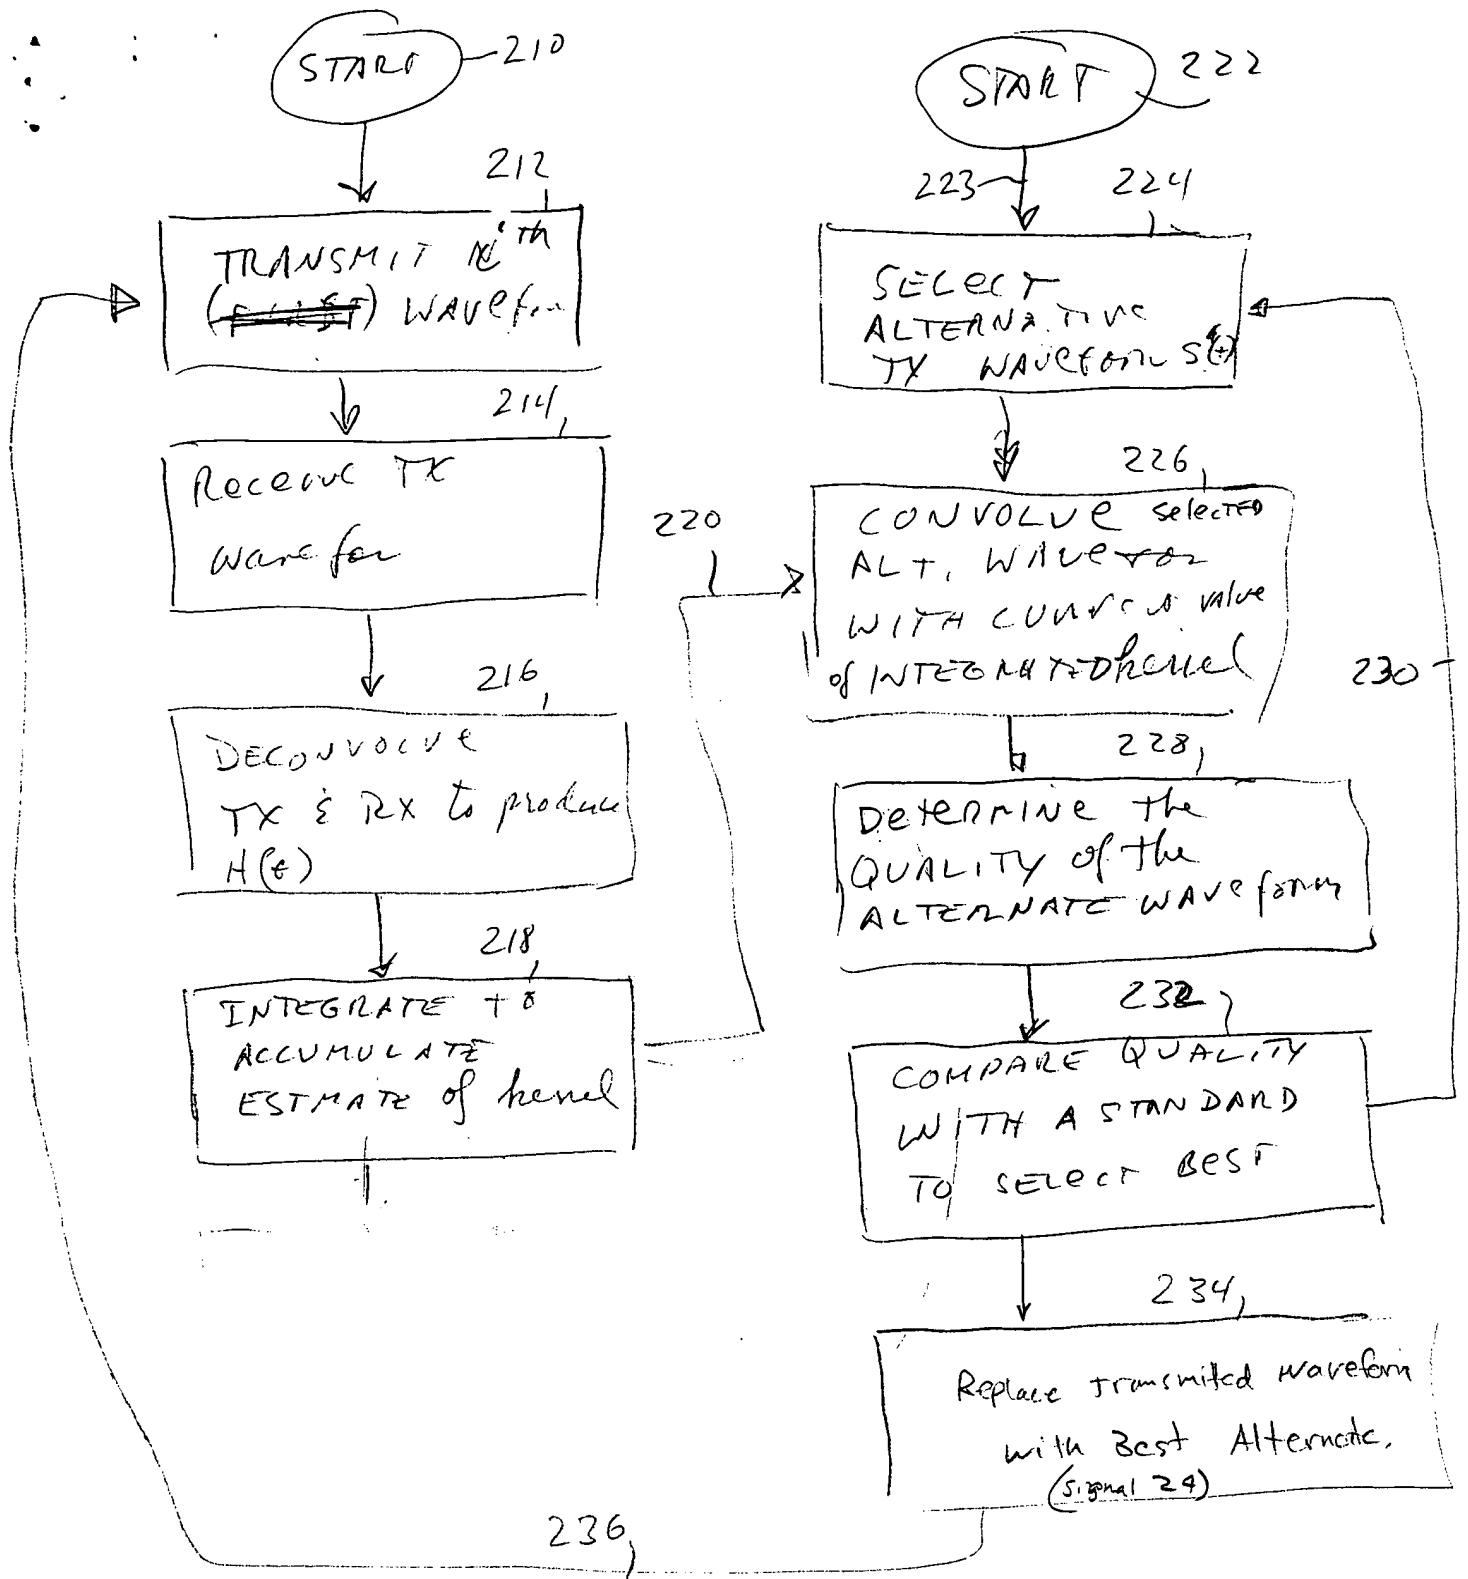 START
210
212
TRANSMIT ith
WAVEform
214
Receive TX
Wavefor
216
DECONVOLVE
TX & RX to produce
H(t)
218
INTEGRATE to
ACCUMULATE
ESTMATE of kernel
220
START
222
223
224
SELECT
ALTERNATIVE
TX WAVEform S(t)
226
CONVOLVE selected
ALT. WAVEfor
WITH value
of INTEGRATED kernel
228
DETERMINE the
QUALITY of the
ALTERNATE WAVEform
230
232
COMPARE QUALITY
WITH A STANDARD
TO SELECT BEST
234
Replace transmitted waveform
with Best Alternate.
(signal 24)
236